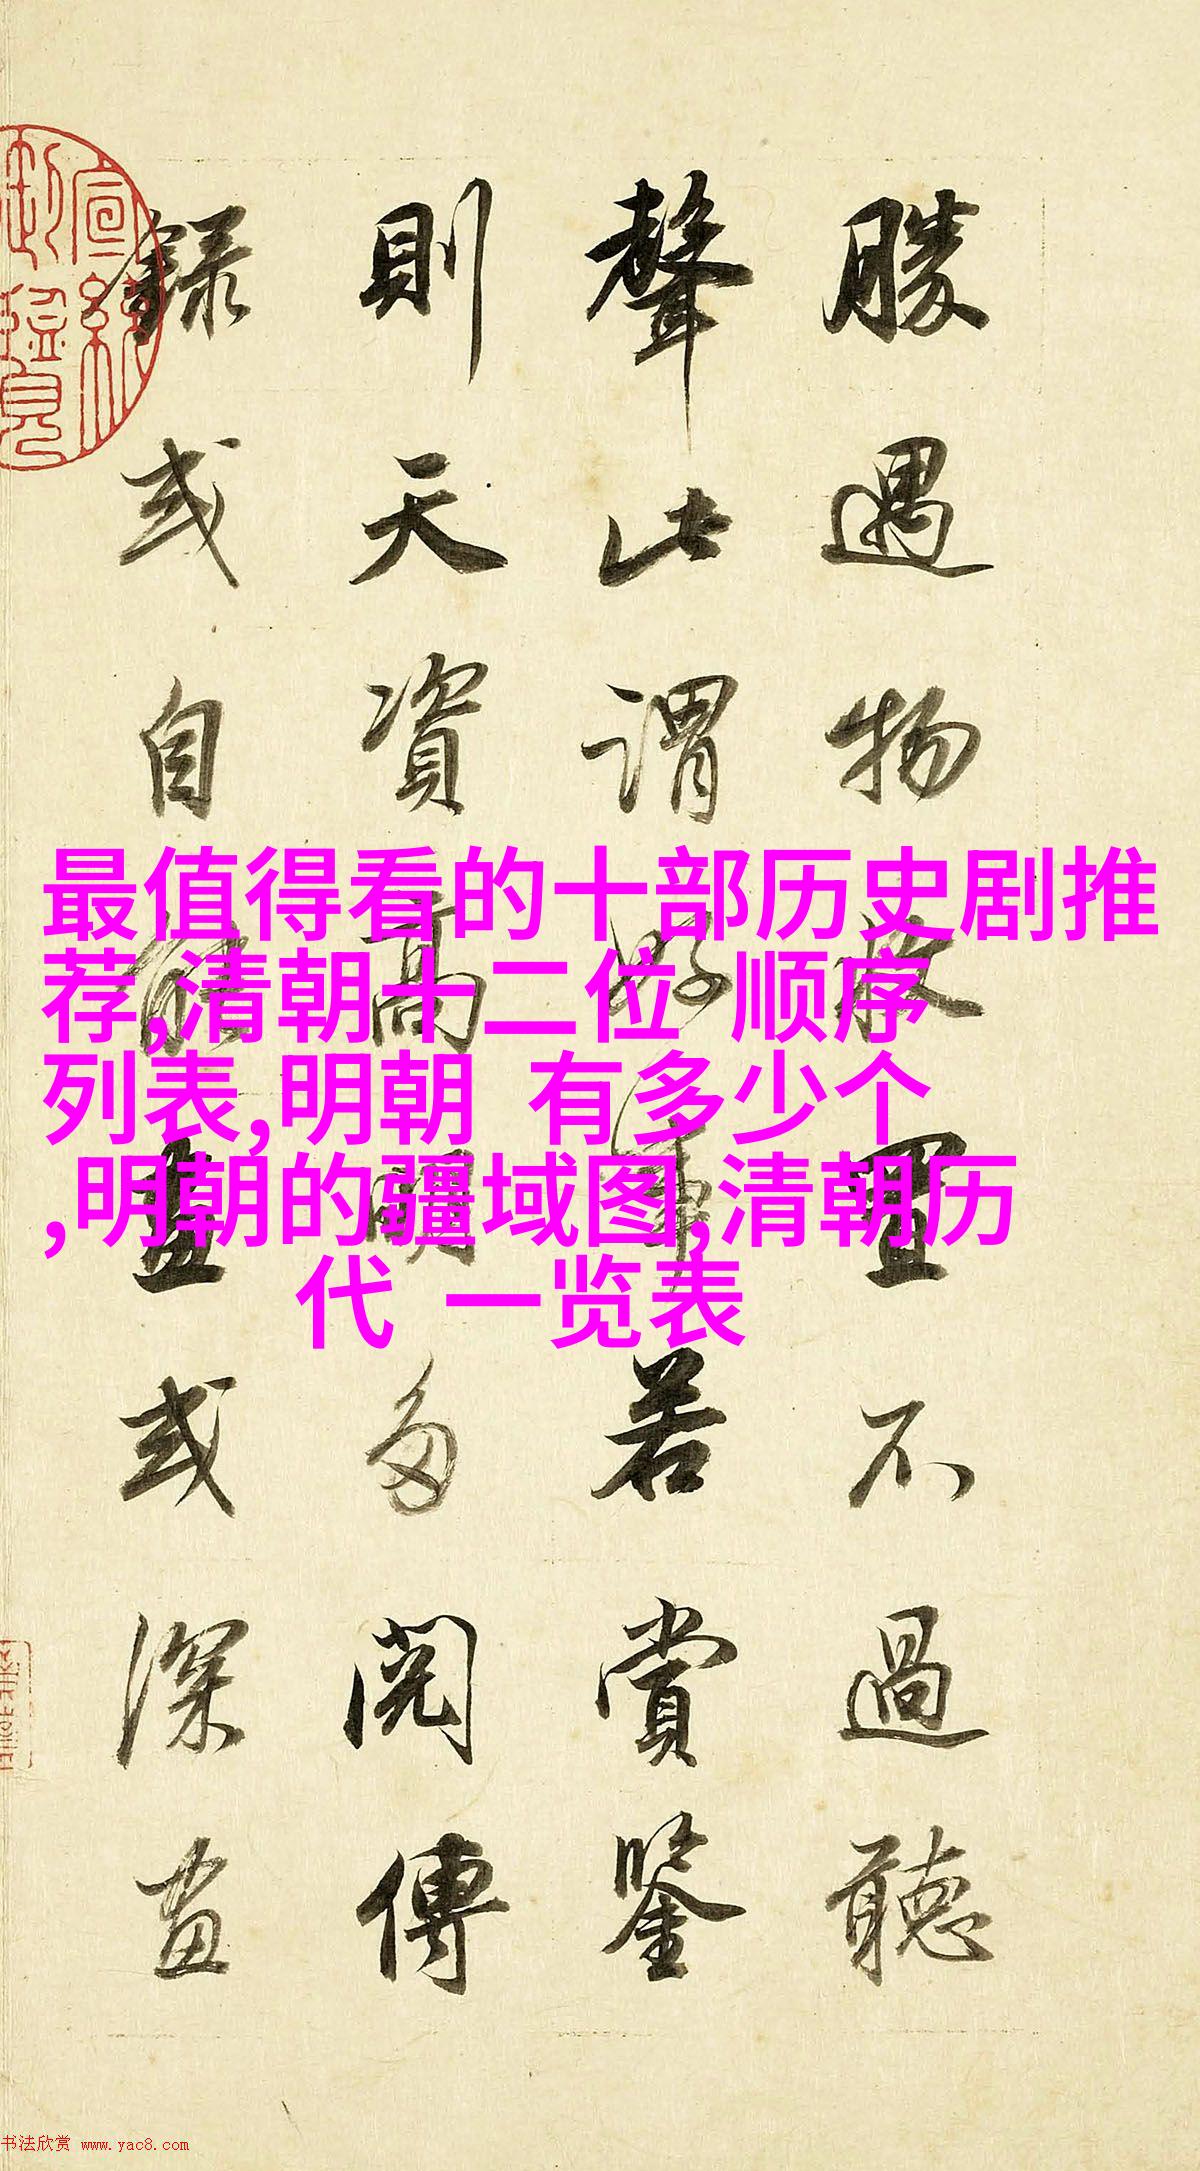 勝遇物收置不過聽
聲此謂好事若賞鑒
則天資高明多閱傳
錄或自能畫或深畫
最值得看的十部历史剧推
荐,清朝十二位 顺序
列表,明朝 有多少个
,明朝的疆域图,清朝历
代 一览表
书法欣赏 www.yac8.com